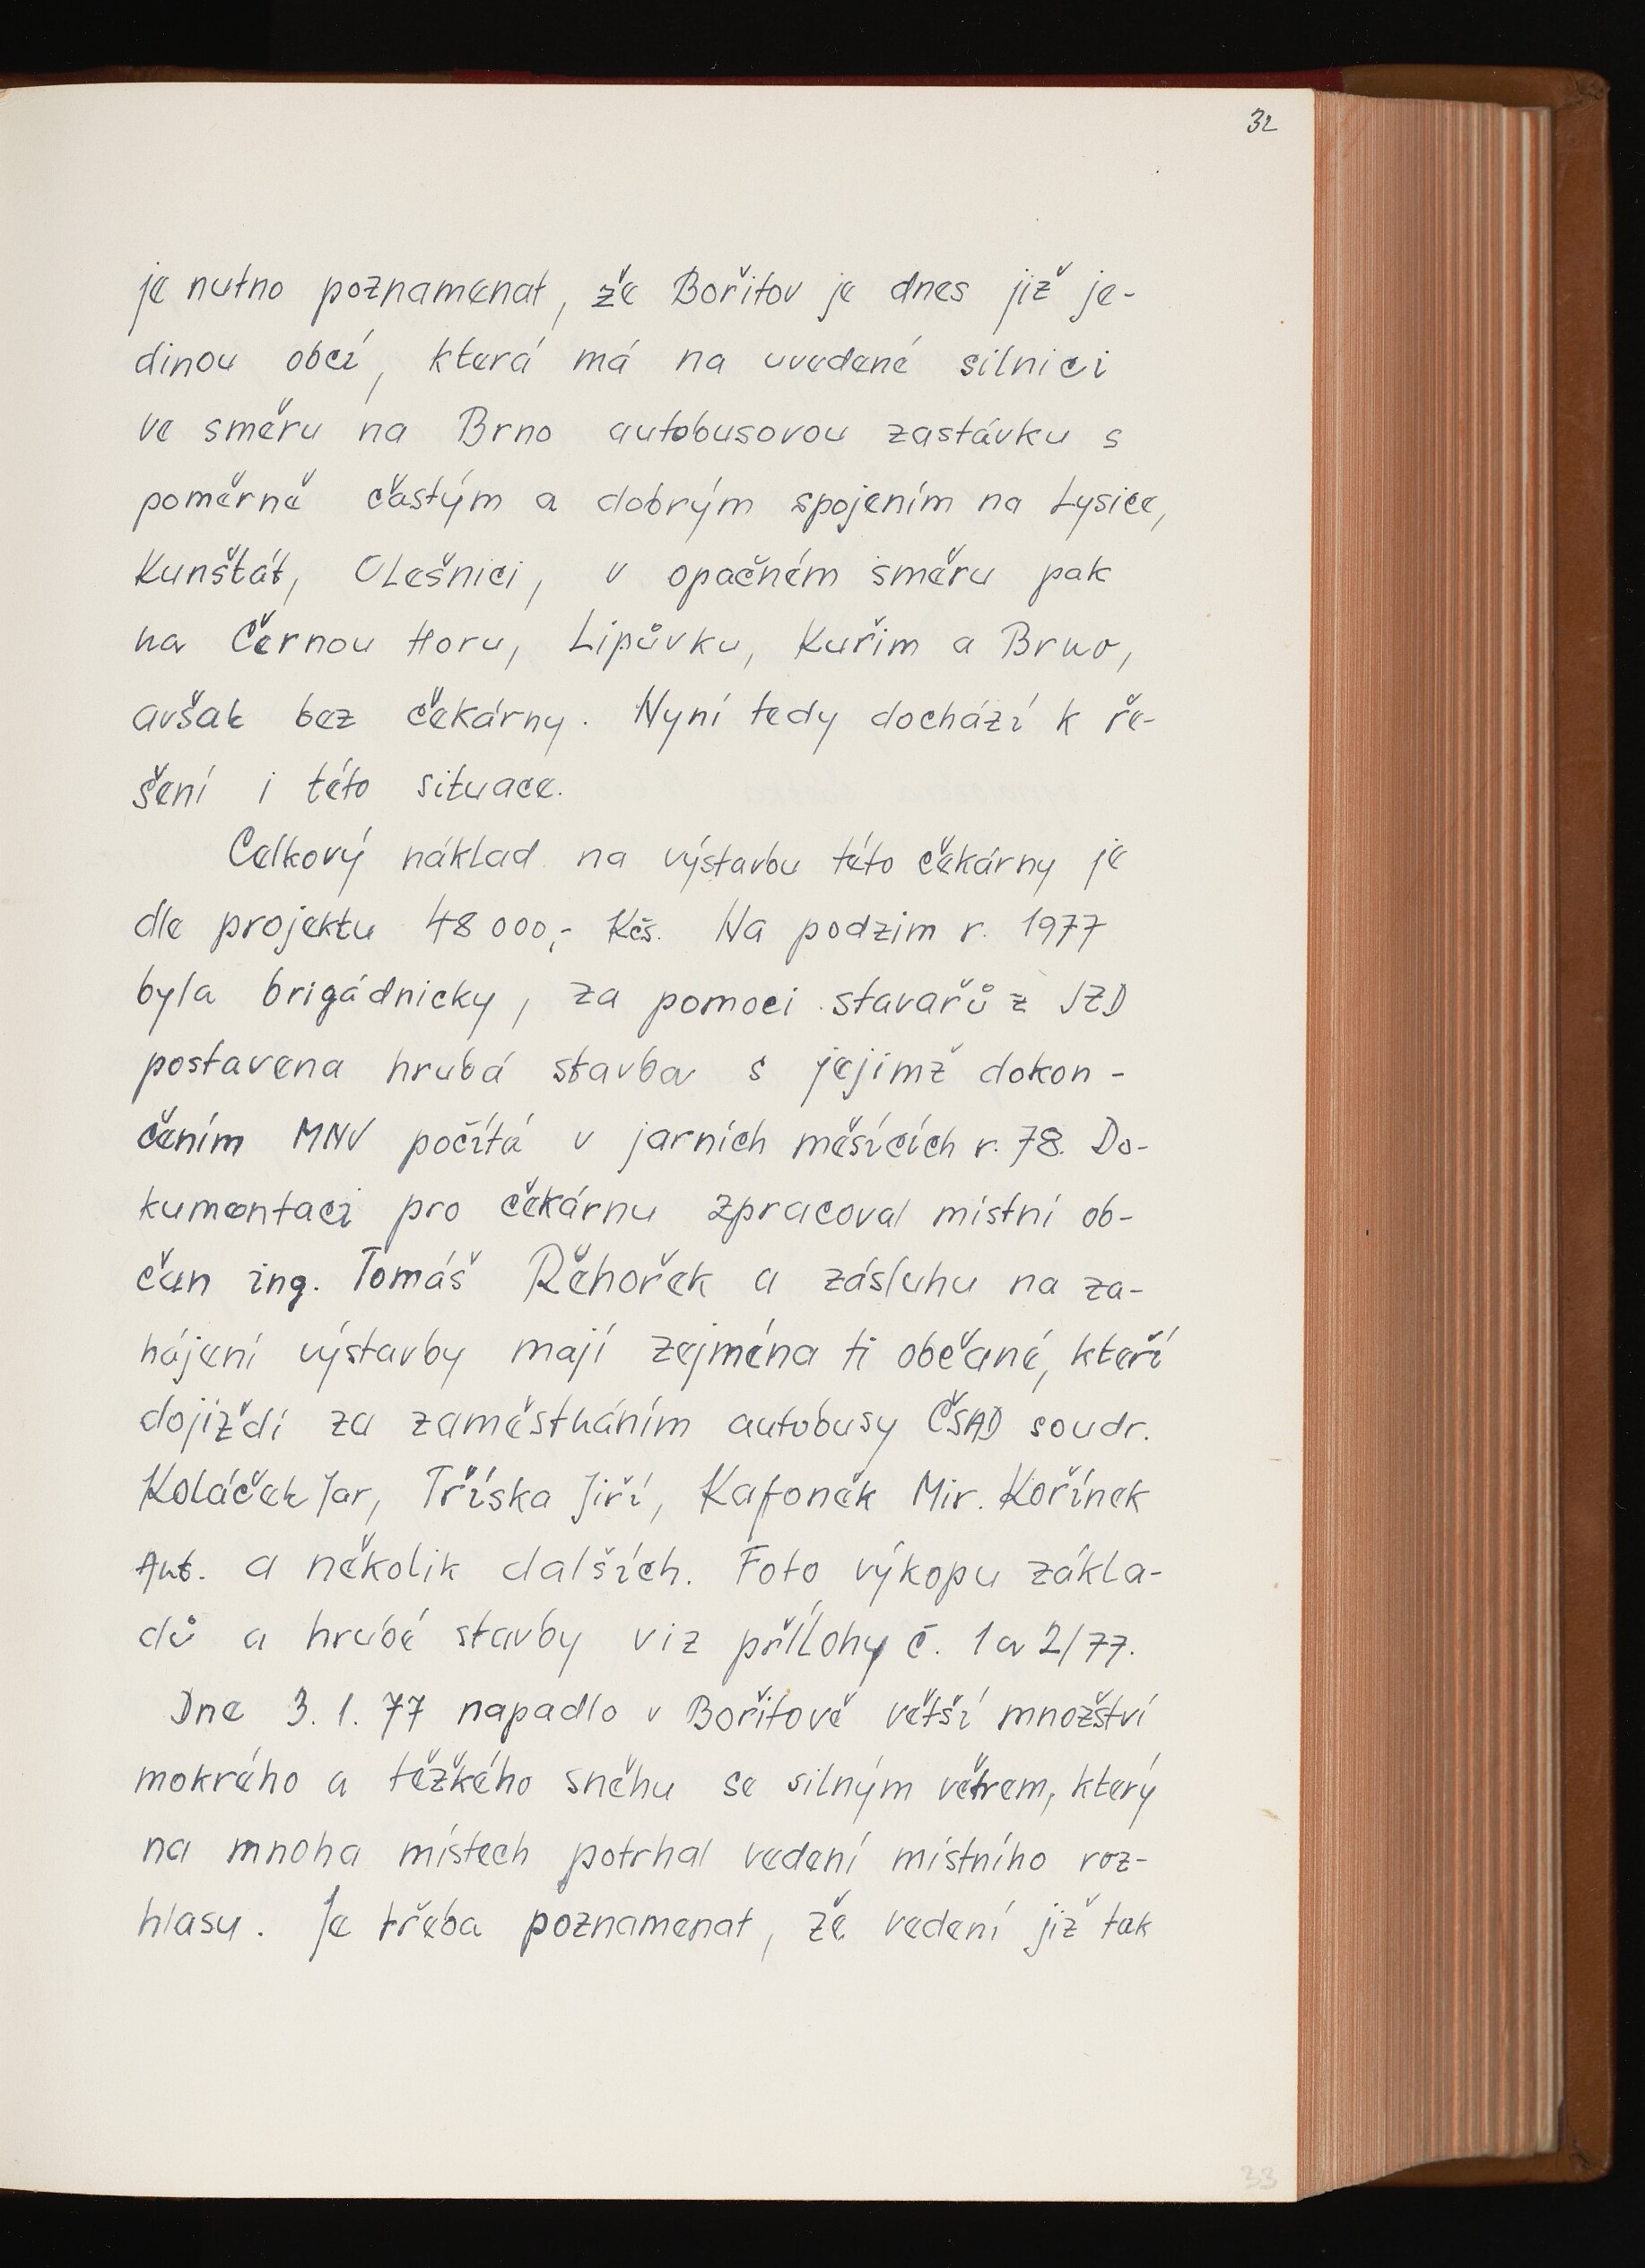 32
je nutno poznamenat, že Bořitov je dnes již je-
dinou obcí, která má na uvedené silnici
ve směru na Brno autobusovou zastávku s
poměrně častým a dobrým spojením na Lysice,
Kunštát, Olešnici, v opačném směru pak
na Černou Horu, Lipůvku, Kuřim a Brno,
avšak bez čekárny. Nyní tedy dochází k ře-
šení i této situace.
Celkový náklad na výstavbu této čekárny je
dle projektu 48 000,- Kčs. Na podzim r. 1977
byla brigádnicky, za pomoci stavařů z JZD
postavena hrubá stavba s jejímž dokon-
čením MNV počítá v jarních měsících r. 78. Do-
kumentaci pro čekárnu zpracoval místní ob-
čan ing. Tomáš Řehořek a zásluhu na za-
hájení výstavby mají zejména ti občané, kteří
dojíždí za zaměstnáním autobusy ČSAD soudr.
Koláček Jar, Tříska Jiří, Kafoněk Mir. Kořínek
Ant. a několik dalších. Foto výkopu zákla-
dů a hrubé stavby viz přílohy č. 1 a 2/77.
Dne 3. 1. 77 napadlo v Bořitově větší množství
mokrého a těžkého sněhu se silným větrem, který
na mnoha místech potrhal vedení místního roz-
hlasu. Je třeba poznamenat, že vedení již tak
33